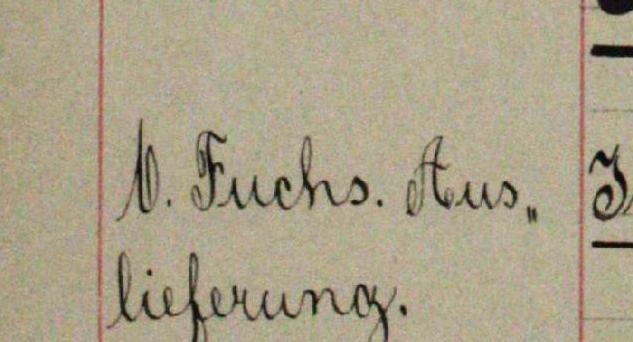 V. Fuchs. Aus„
lieferung.